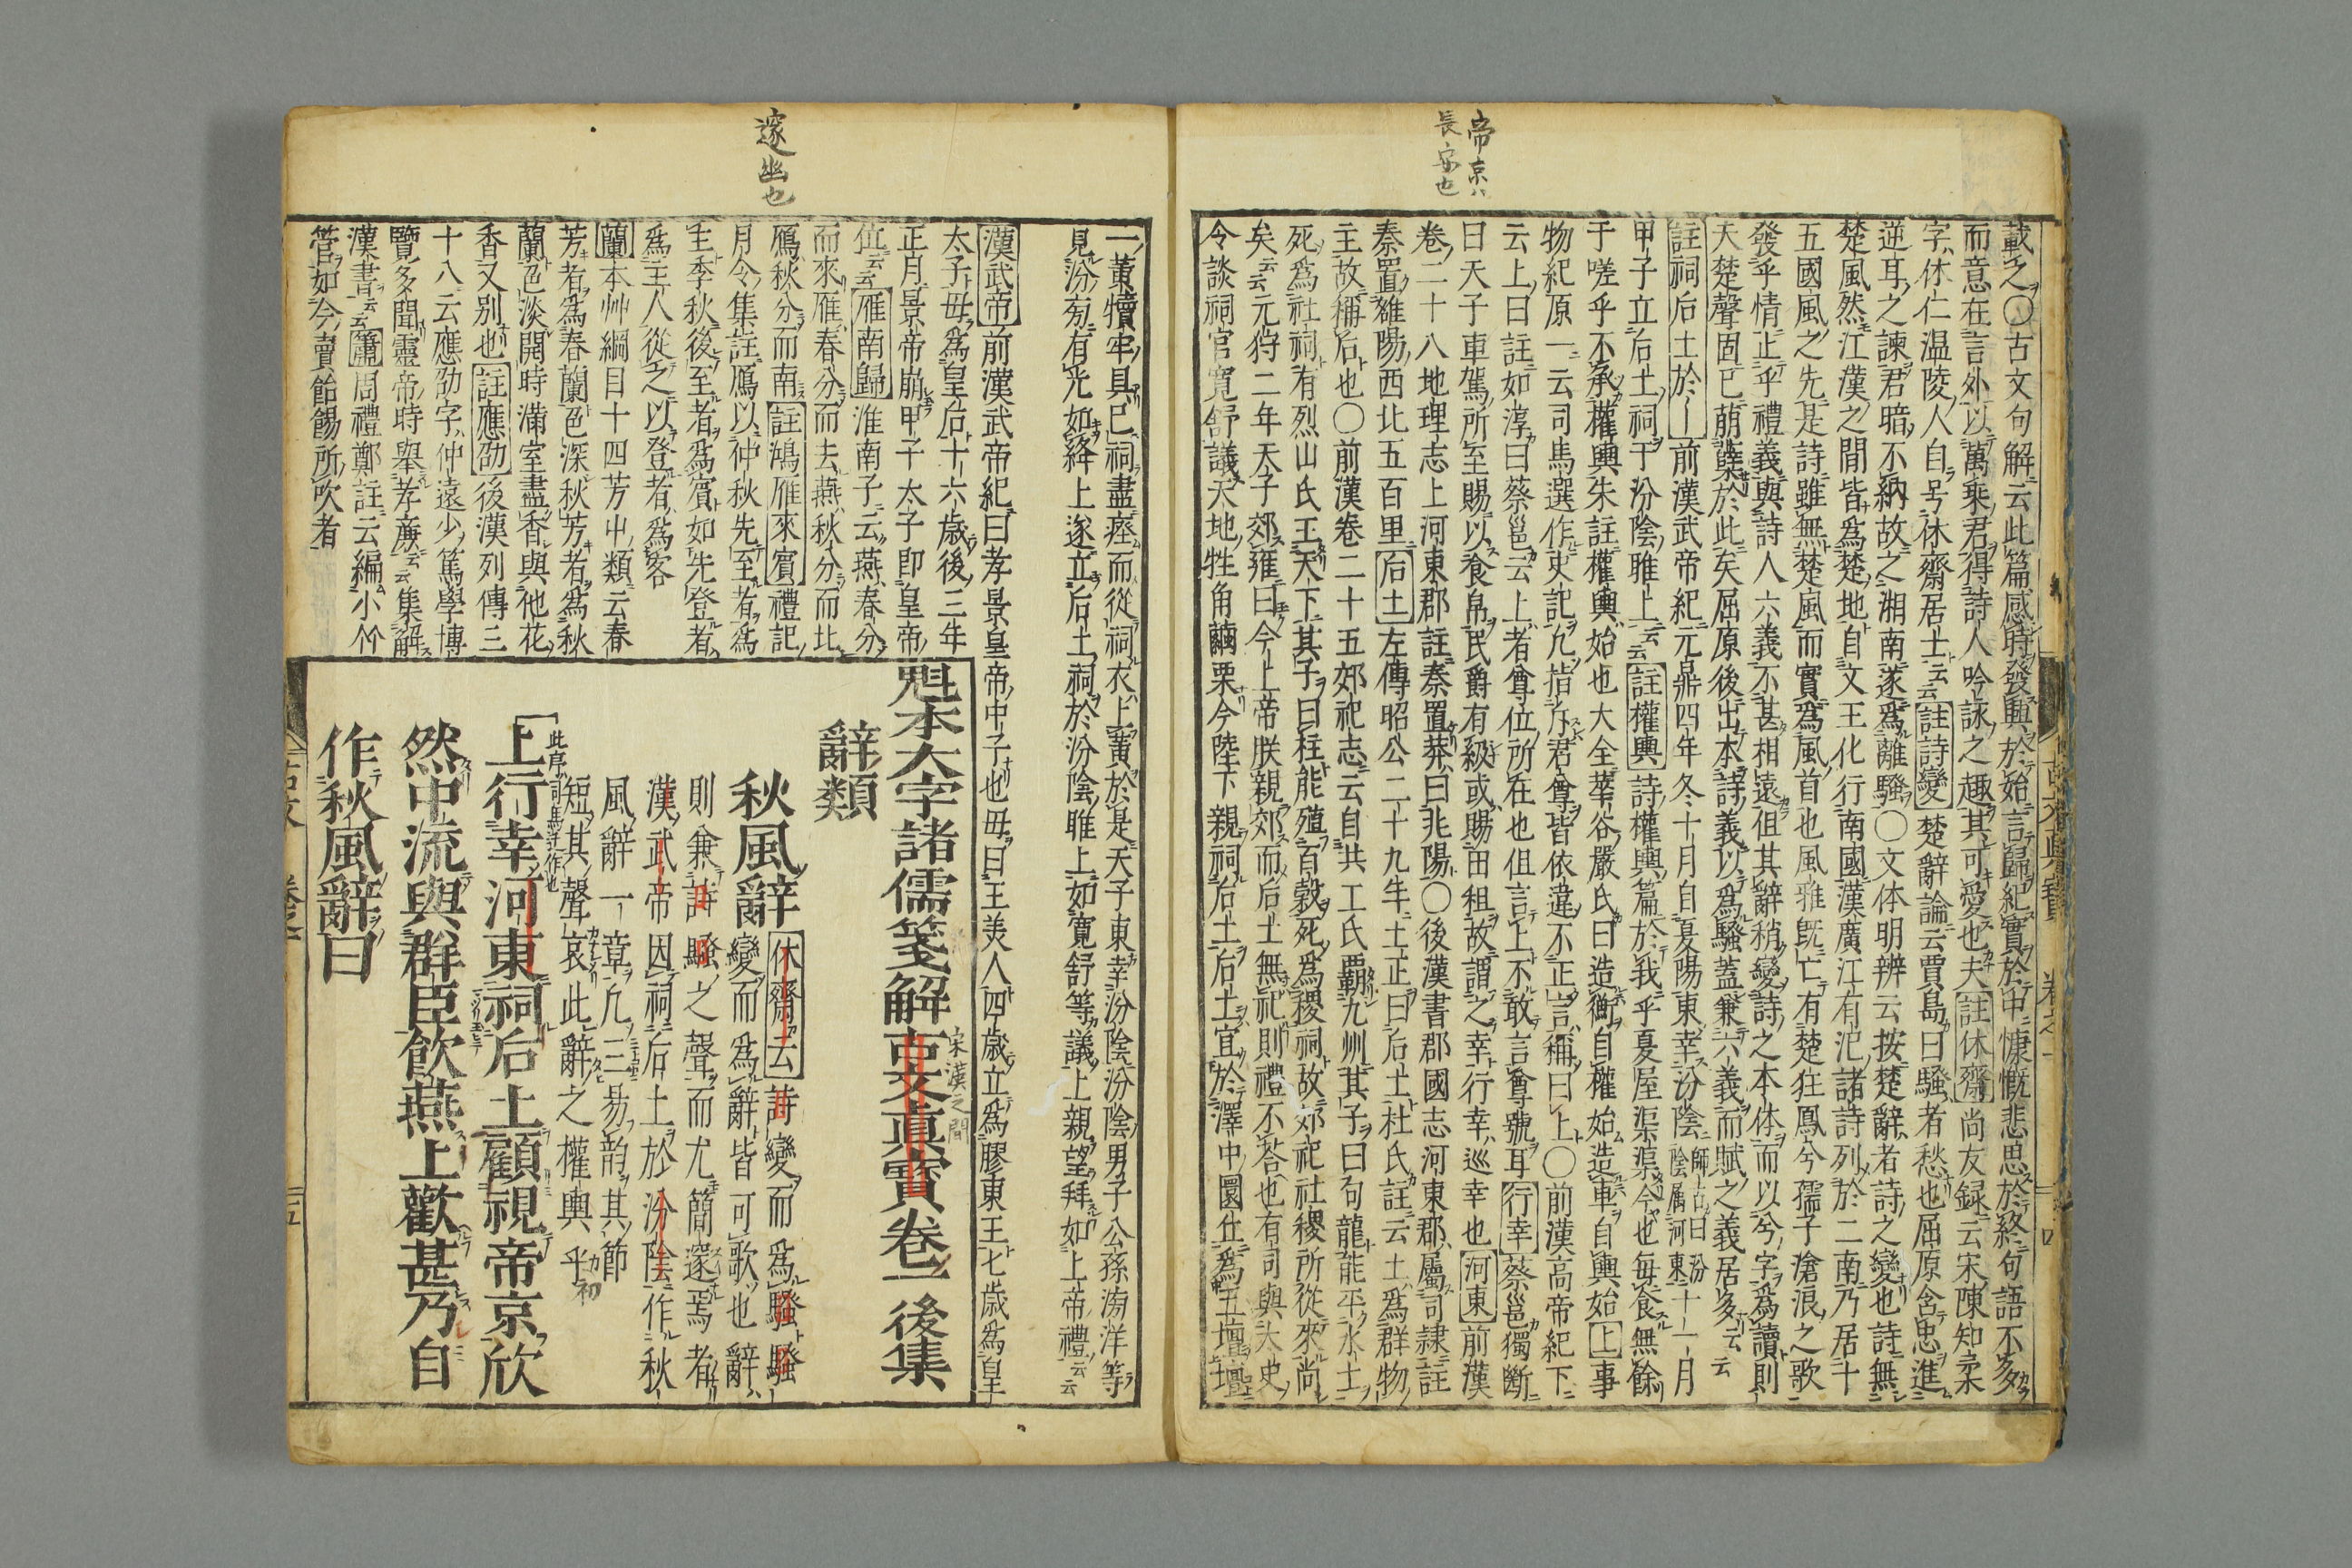 帝京ハ
長安也
載之〇古文句解云此篇感時發興於始言歸紀實於中慷慨悲思於終句語不多
而意在言外以萬乘君得詩人吟詠之趣其可愛也夫註休齋尚友録云宋陳知柔
字休仁温陵人自号休齋居士云云註詩變楚辭論云賈島曰騷者愁也屈原舍忠進
逆耳之諫君暗不納故之湘南遂爲離騷〇文体明辨云按楚辭者詩之變也詩無
楚風然江漢之間皆爲楚地自文王化行南國漢廣江有汜諸詩列於二南乃居十
五國風之先是詩雖無楚風而實爲風首也風雅既亡有楚狂鳳兮孺子滄浪之歌
發乎情止乎禮義與詩人六義不甚相遠但其辭稍變詩之本体而以兮字爲讀則
夫楚聲固已萠蘖於此矣屈原後出本詩義以爲騷蓋兼六義而賦之義居多云云
註祠后土於〡前漢武帝紀元鼎四年冬十月自夏陽東幸汾陰師古曰汾陰属河東十一月
甲子立后土祠于汾陰脽上云云註權輿詩權輿篇於我乎夏屋渠渠今也毎食無餘
于嗟乎不承權輿朱註權輿始也大全華谷嚴氏曰造衡自權始造車自輿始上事
物紀原一云司馬選作史記凢指斥君尊皆依違不正言稱曰上〇前漢高帝紀下
云上曰註如淳曰蔡邕云上者尊位所在也但言上不敢言尊號耳行幸蔡邕獨斷
曰天子車駕所至賜以食帛民爵有級或賜田租故謂之幸行幸巡幸也河東前漢
卷二十八地理志上河東郡註秦置莽曰兆陽〇後漢書郡國志河東郡屬司隷註
秦置雒陽西北五百里后土左傳昭公二十九年土正曰后土杜氏註云土爲群物
主故稱后也〇前漢卷二十五郊祀志云自共工氏霸九州其子曰句龍能平水土
死爲社祠有烈山氏王天下其子曰柱能殖百穀死爲稷祠故郊祀社稷所從來尚
矣云云元狩二年天子郊雍曰今上帝朕親郊而后土無祀則禮不荅也有司與太史
令談祠官寛舒議天地牲角繭栗今陛下親祠后土后土宜於澤中圜丘爲五壇壇
邃幽也
一黄犢牢具已祠盡瘞而從祠衣上黄於是天子東幸汾陰汾陰男子公孫滂洋等
見汾旁有光如絳上遂立后土祠於汾陰脽上如寛舒等議上親望拜如上帝禮云云
漢武帝前漢武帝紀曰孝景皇帝中子也母曰王美人四歳立爲膠東王七歳爲皇
太子母爲皇后十六歳後三年
正月景帝崩甲子太子即皇帝
位云云雁南歸淮南子云燕春分
而來雁春分而去燕秋分而北
鴈秋分而南註鴻雁來賓禮記
月令集註鴈以仲秋先至者爲
主季秋後至者爲賓如先登者
爲主人從之以登者爲客
蘭本艸綱目十四芳屮類云春
芳者爲春蘭色深秋芳者爲秋
蘭色淡開時滿室盡香與他花
香又別也註應劭後漢列傳三
十八云應劭字仲遠少篤學博
覽多聞靈帝時舉孝廉云云集解
漢書云云簫周禮鄭註云編小竹
管如今賣飴餳所吹者
魁本大字諸儒箋解古文眞寶卷一後集
宋漢之間
辭類
秋風辭休齋云詩變而爲騷騷
變而爲辭皆可歌也辭
則兼詩騷之聲而尤簡邃焉者
漢武帝因祠后土於汾陰作秋
風辭一章凢三易韵其節
短其聲哀此辭之權輿乎初
此序司馬迁作也
上行幸河東祠后土顧視帝京欣
然中流與群臣飲燕上歡甚乃自
作秋風辭曰